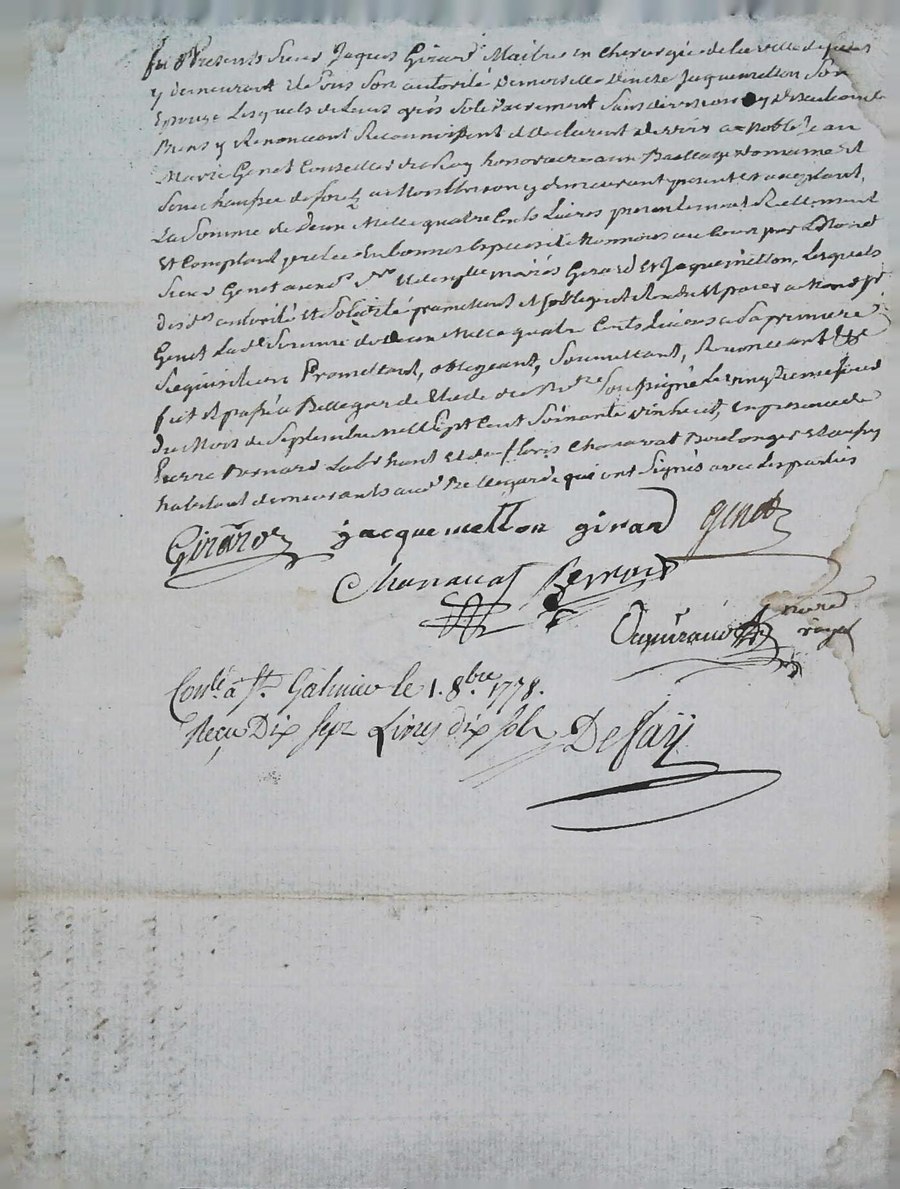 fut Présents Sieur Jaques Girard Maitre en Chirurgie de la ville de
y demeurant et de sous son autorité Demoiselle Jaquemetton Son
Epouse Lesquels de leurs grés solidairement sans division ny discution de
Biens y Renoncant Reconnoissent et declarent devoir a Noble Jean
Marie Genet Conseiller du Roy honoraire au Bailliage Domaine et
Senechaussée de forez a Montbrison y demeurant present et acceptant,
La Somme de Deux Mille quatre Cents Livres presentement Reellement
Et Comptant pretée En bonnes Especes de Monnoies au Cour par led. Noble
Sieur Genet auxd. Sr. et dlle mariés Girard Et Jaquemetton, Lesquels
desds autorité et solidité promettent et s'obligent Rendre et payer a Mond. Sr.
Genet Lad. Somme de deux Mille quatre Cents Livres a Sa premiere
Requisition Promettant, obligeant, Soumettant, Renonceant
fait et passé a Bellegarde Etude du Nre Soussigné Le vingt
du Mois de Septembre Mille Sept Cent Soixante dix huit, En presence de
Pierre Bernard et de Sr floris Chazavat Boulonger
habitant demeurants aud. Bellegarde qui ont Signés avec Les parties
Girard jacquemetton girard genet
Bernard
royal
Conlé à St. Galmier le 1. 8.bre 1778.
Reçu Dix sept Livres dix sols Defaÿ